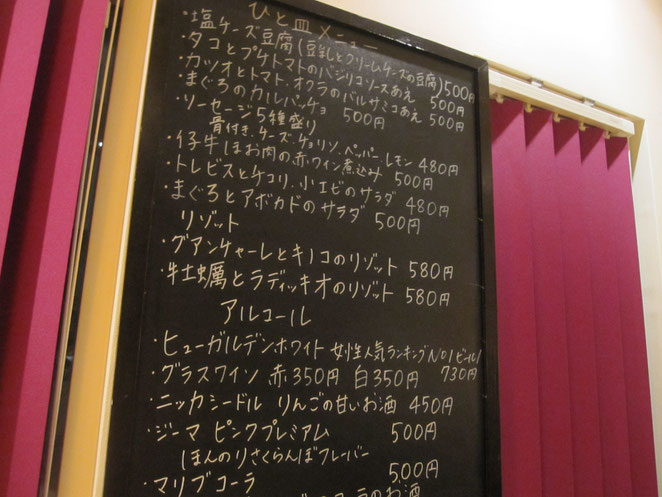 ひと皿メニュー
・塩チーズ豆腐(豆乳とクリームチーズの豆腐)500円
・タコとプチトマトのバジリコソースあえ 500円
・カツオとトマト、オクラのバルサミコあえ 500円
・まぐろのカルパッチョ 500円
・ソーセージ5種盛り
骨付き、チーズ、チョリソ、ペッパー、レモン 480円
・仔牛ほお肉の赤ワイン煮込み 500円
・トレビスとチコリ、小エビのサラダ 480円
・まぐろとアボカドのサラダ 500円
リゾット
・グアンチャーレとキノコのリゾット 580円
・牡蠣とラディッキオのリゾット 580円
アルコール
・ヒューガルデンホワイト 女性人気ランキングNo1ビール!
730円
・グラスワイン 赤350円 白350円
・ニッカシードル りんごの甘いお酒 450円
・ジーマ ピンクプレミアム 500円
ほんのりさくらんぼフレーバー
・マリブコーラ 500円
のお酒